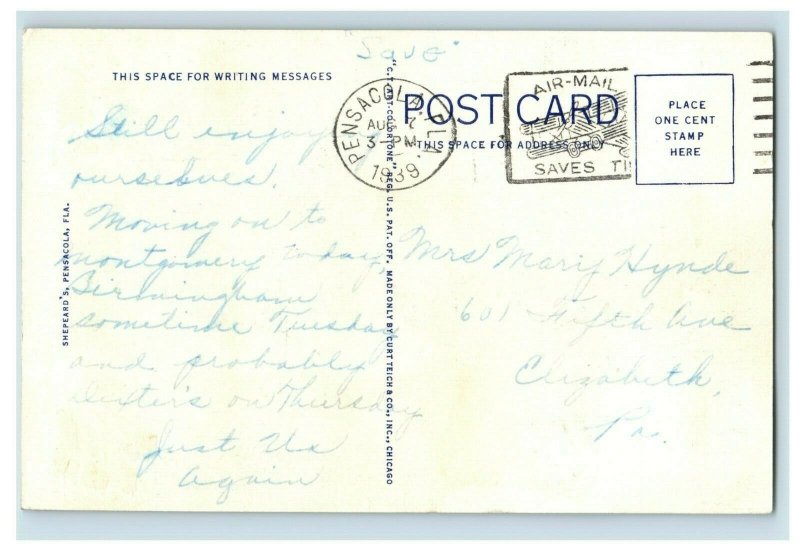 "Save"
THIS SPACE FOR WRITING MESSAGES
Still enjoying
ourselves.
Moving on to
montgomery today,
Birmingham
sometime Tuesday
and probably
Dexter's on Thursday
Just Us
again
SHEPEARD'S, PENSACOLA, FLA.
"C.T. ART-COLORTONE" REG. U.S. PAT. OFF. MADE ONLY BY CURT TEICH & CO., INC., CHICAGO
PENSACOLA, FLA.
AUG 7
3-PM
1939
POST CARD
THIS SPACE FOR ADDRESS ONLY
AIR-MAIL
SAVES TI
PLACE
ONE CENT
STAMP
HERE
Mrs Mary Hynde
601 Fifth Ave
Elizabeth,
Pa.